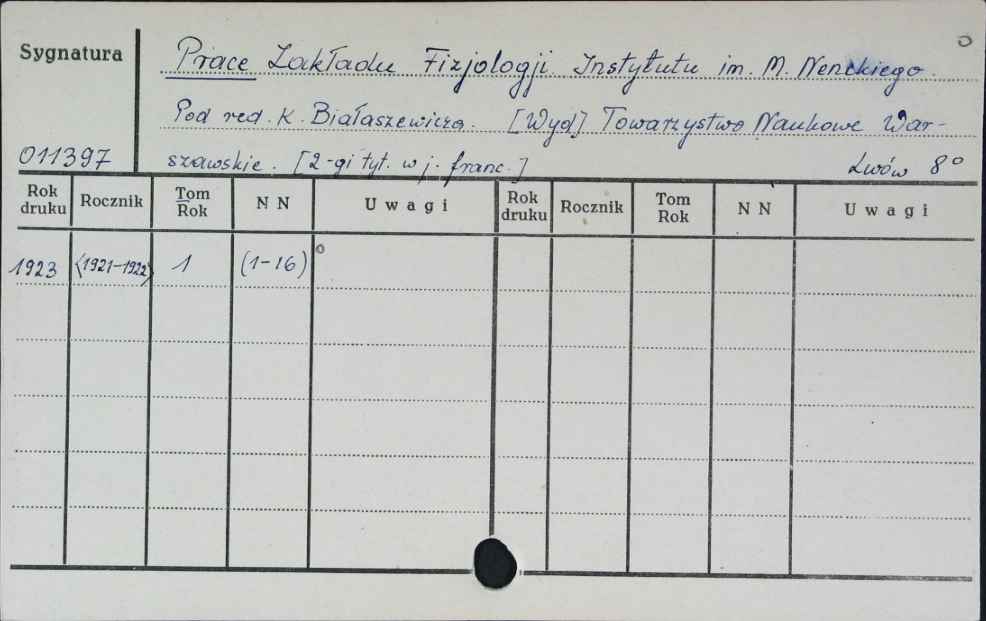 Sygnatura
Prace Zakładu Fizjologji Instytutu im. M. Nenckiego.
Pod red. K. Białaszewicza. [Wyd] Towarzystwo Naukowe War-
011397 szawskie. [2-gi tyt. w j. franc.] Lwów 8°
Rok druku Rocznik Tom Rok N N Uwagi Rok druku Rocznik Tom Rok N N Uwagi
1923 <1921-1922> 1 (1-16)